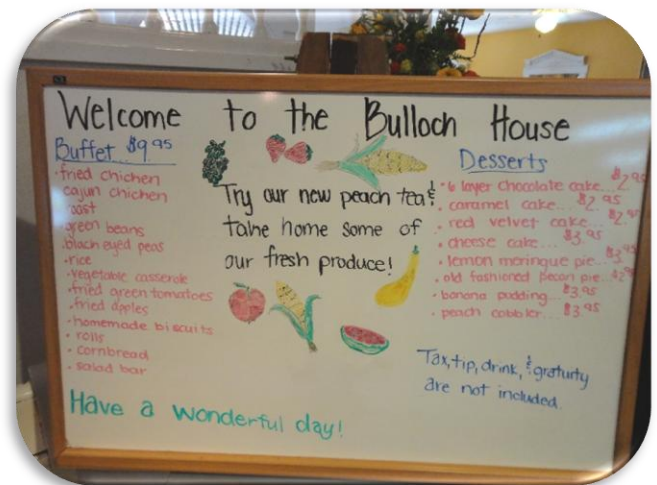 Welcome to the Bulloch House
Buffet $9.95
· fried chicken
cajun chicken
roast
green beans
black eyed peas
· rice
· vegetable casserole
· fried green tomatoes
· fried apples
· homemade biscuits
· rolls
· cornbread
· salad bar
Try our new peach tea &
take home some of
our fresh produce!
Desserts
· 6 layer chocolate cake...$2.95
· caramel cake...$2.95
· red velvet cake...
· cheese cake...$3.95
· lemon meringue pie...$3.95
· old fashioned pecan pie...
· banana pudding...$3.95
· peach cobbler...$3.95
Tax, tip, drink, & gratuity
are not included.
Have a wonderful day!